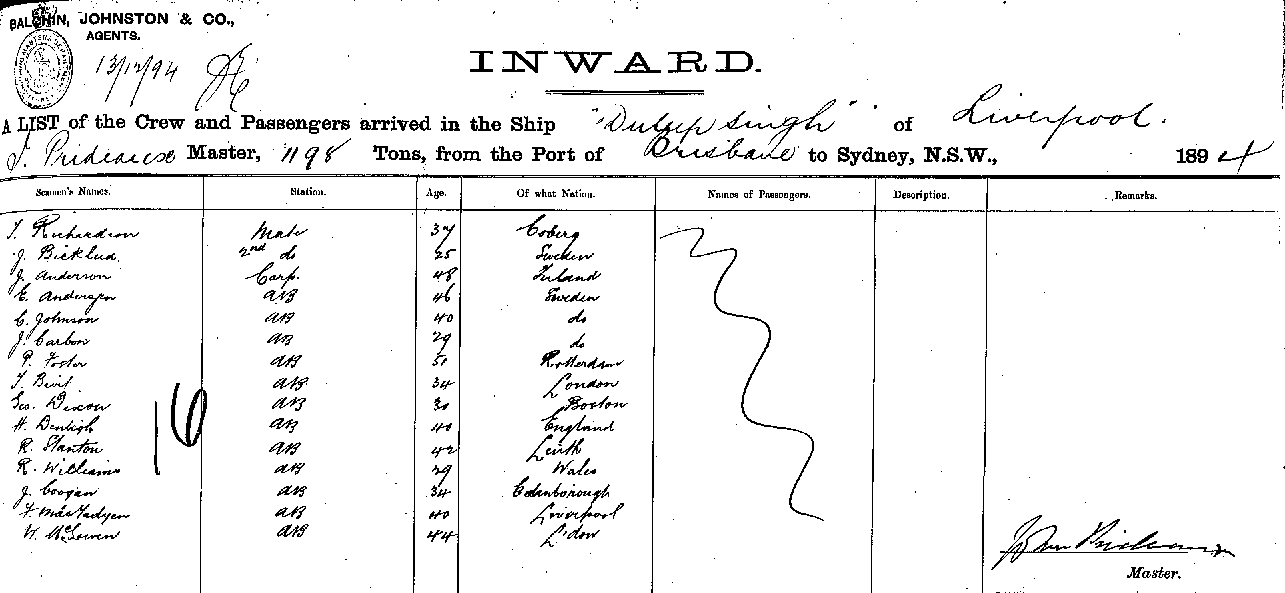 BALCHIN, JOHNSTON & CO.,
AGENTS.
13/12/94
INWARD.
A LIST of the Crew and Passengers arrived in the Ship "Duleep Singh" of Liverpool.
J. Prideaux Master, 1198 Tons, from the Port of Brisbane to Sydney, N.S.W., 1894
Seamen's Names. Station. Age. Of what Nation. Names of Passengers. Description. Remarks.
T. Richardson Mate 37 Coberg
J. 2nd do 25 Sweden
J. Anderson Carp. 48 Finland
E. Andersen AB 46 Sweden
C. Johnson AB 40 do
J. Carbon AB 29 do
P. Foster AB 51 Rotterdam
T. AB 34 London
Geo. Dixon AB 30 Boston
H. AB 40 England
R. Stanton AB 42 Leith
R. Williams AB 29 Wales
J. Coogan AB 34 Edinborough
F. MacFadyen AB 40 Liverpool
W. McGowen AB 44 L'don
16
John Prideaux
Master.